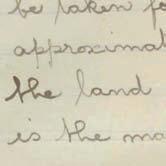 be taken
approximat
the land
is the